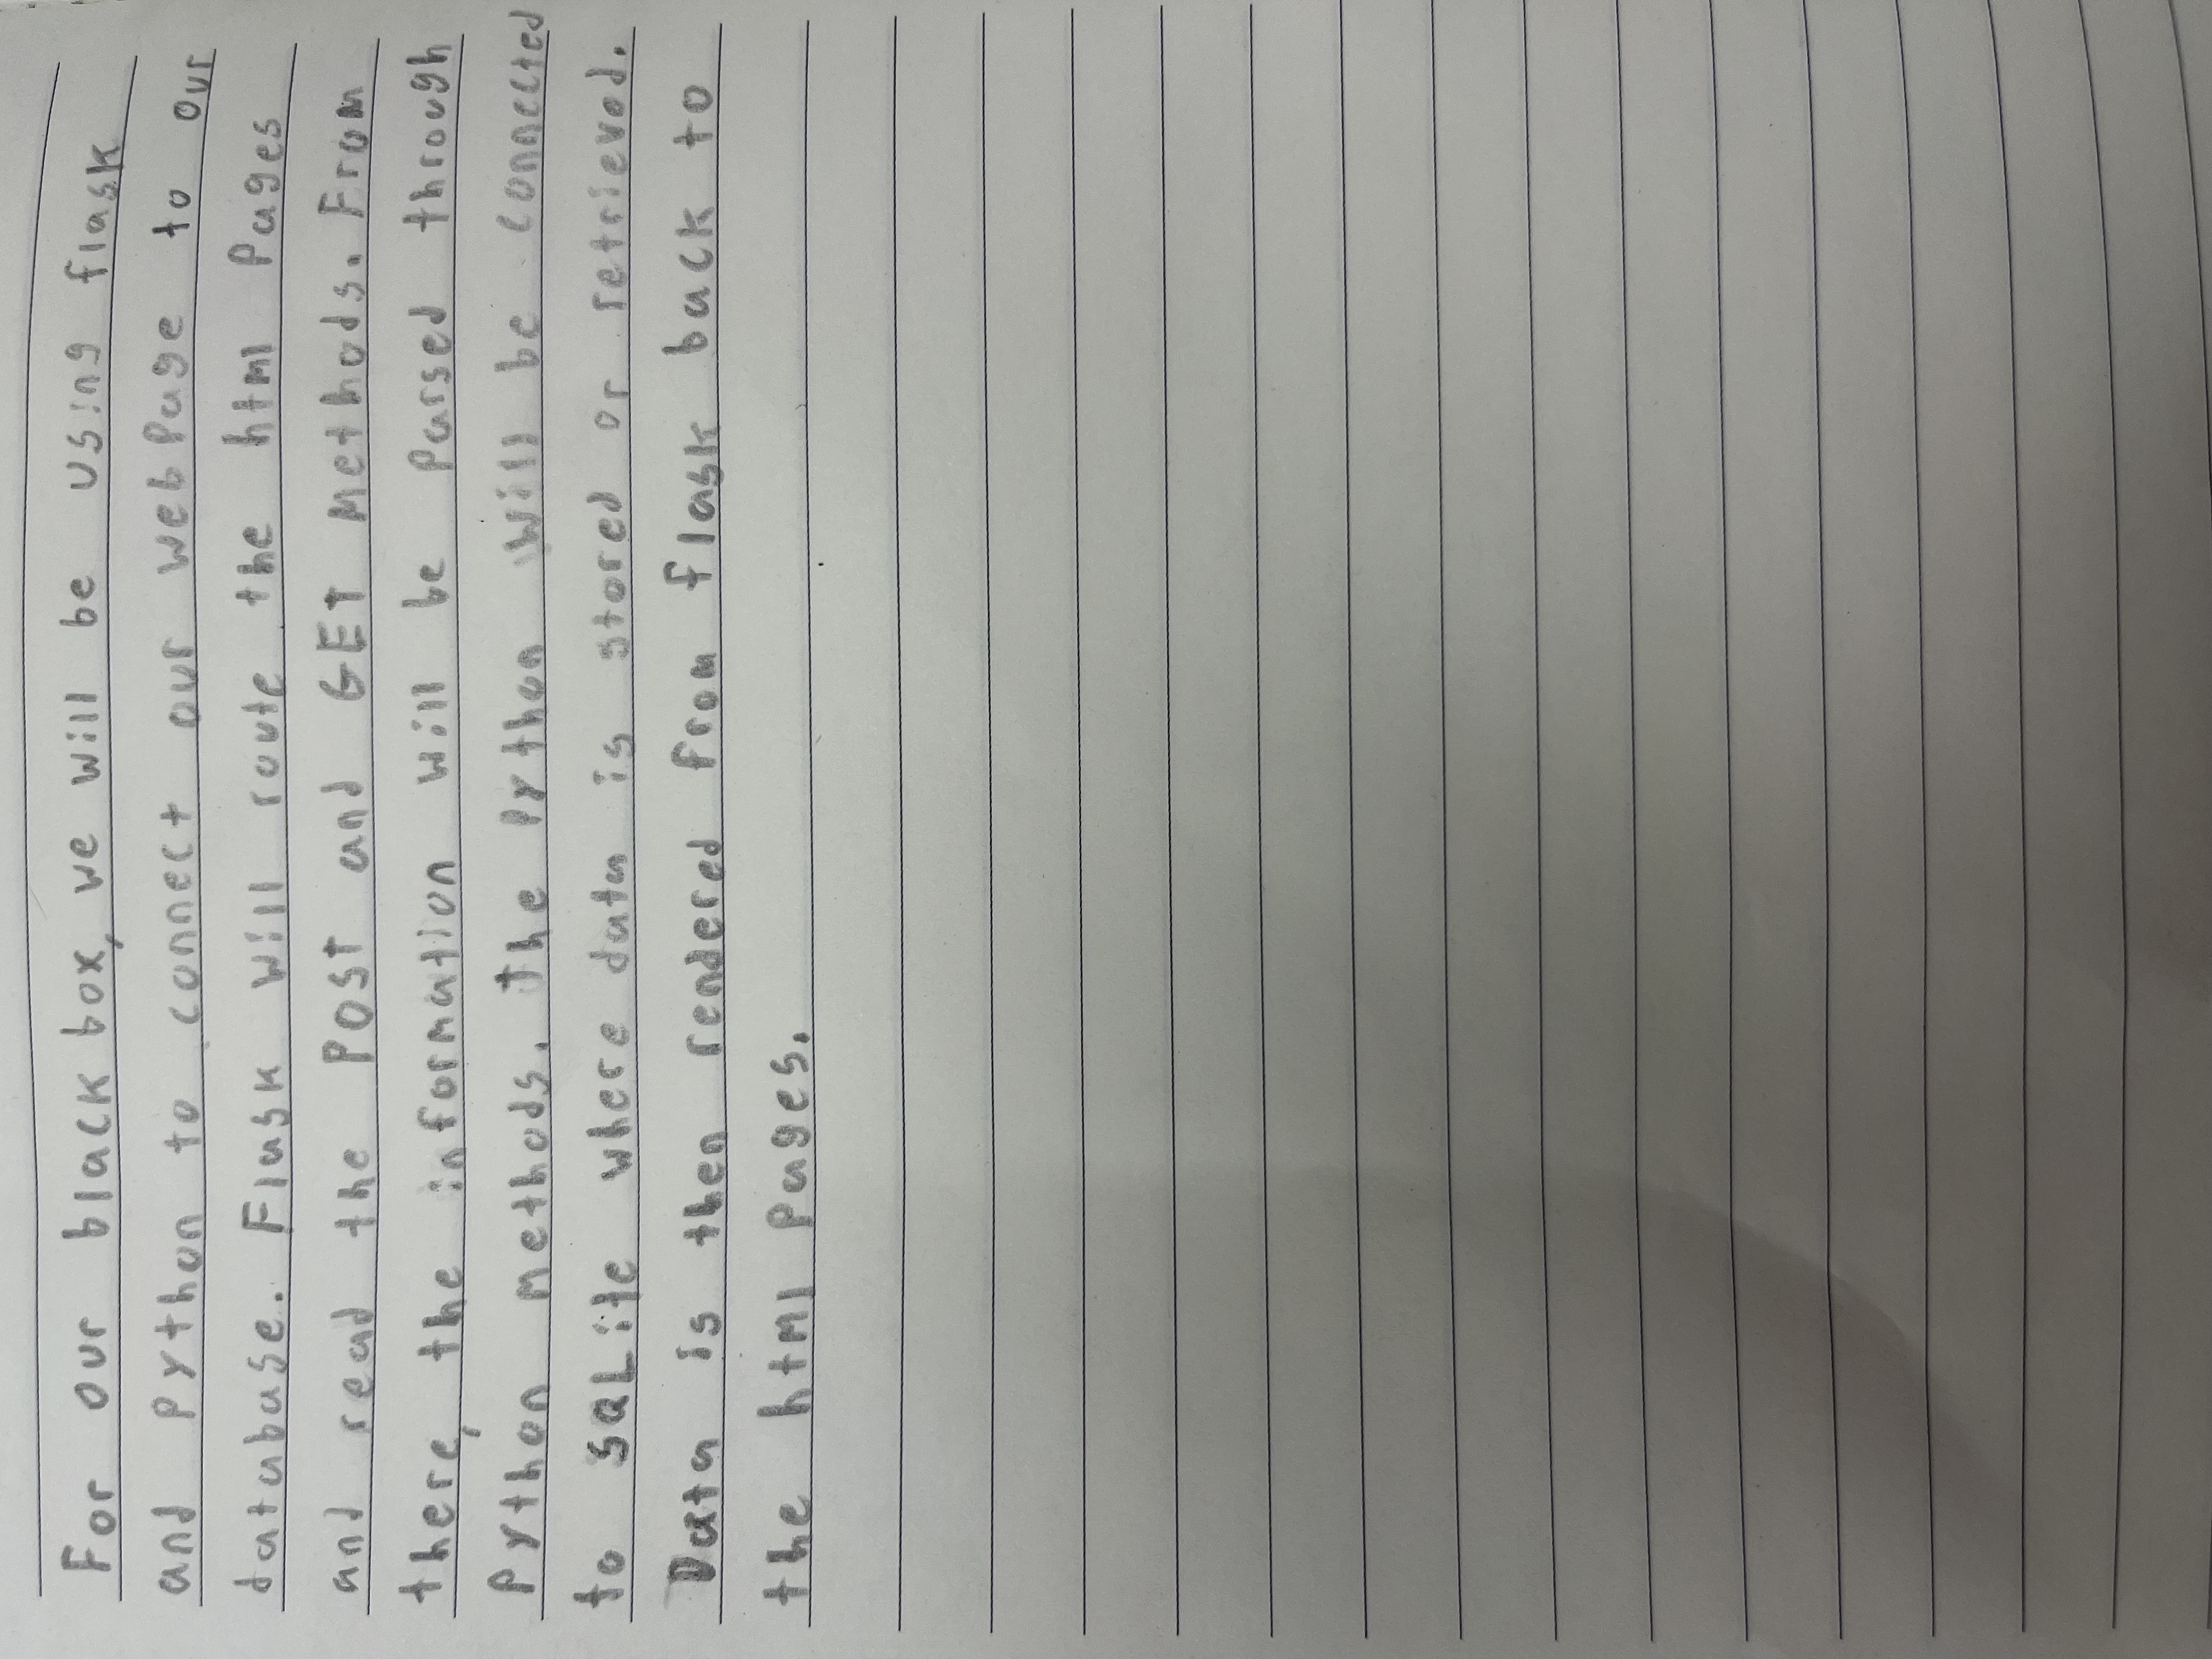 For our black box, we will be using flask
and Python to connect our web Page to our
database. Flask will route the html Pages
and read the POST and GET Methods. From
there, the information will be Parsed through
Python methods. The Python will be connected
to SQLite where data is stored or retrieved.
Data is then rendered from flask back to
the html Pages.